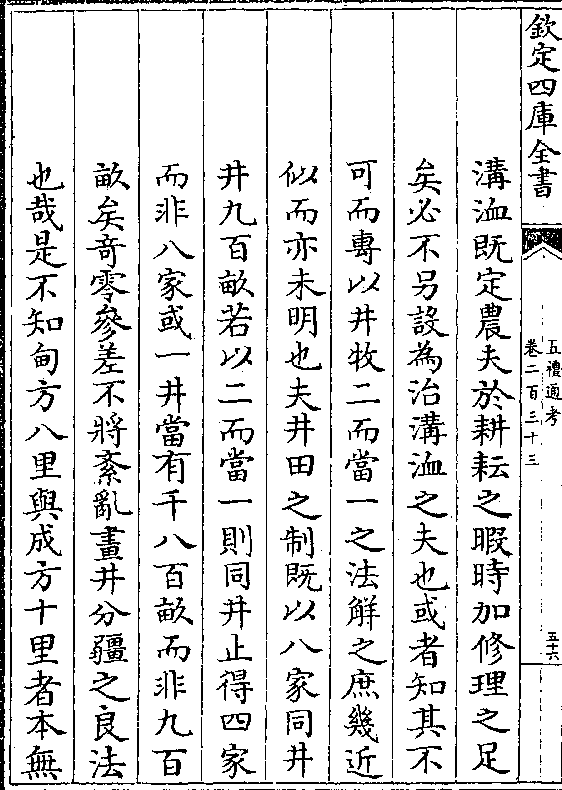 欽定四庫全書
五禮通考
卷二百三十三
五十六
溝洫既定農夫於耕耘之暇時加修理之足
矣必不另設為治溝洫之夫也或者知其不
可而專以井牧二而當一之法解之庶幾近
似而亦未明也夫井田之制既以八家同井
井九百畝若以二而當一則同井止得四家
而非八家或一井當有千八百畝而非九百
畝矣奇零參差不將紊亂畫井分疆之良法
也哉是不知甸方八里與成方十里者本無